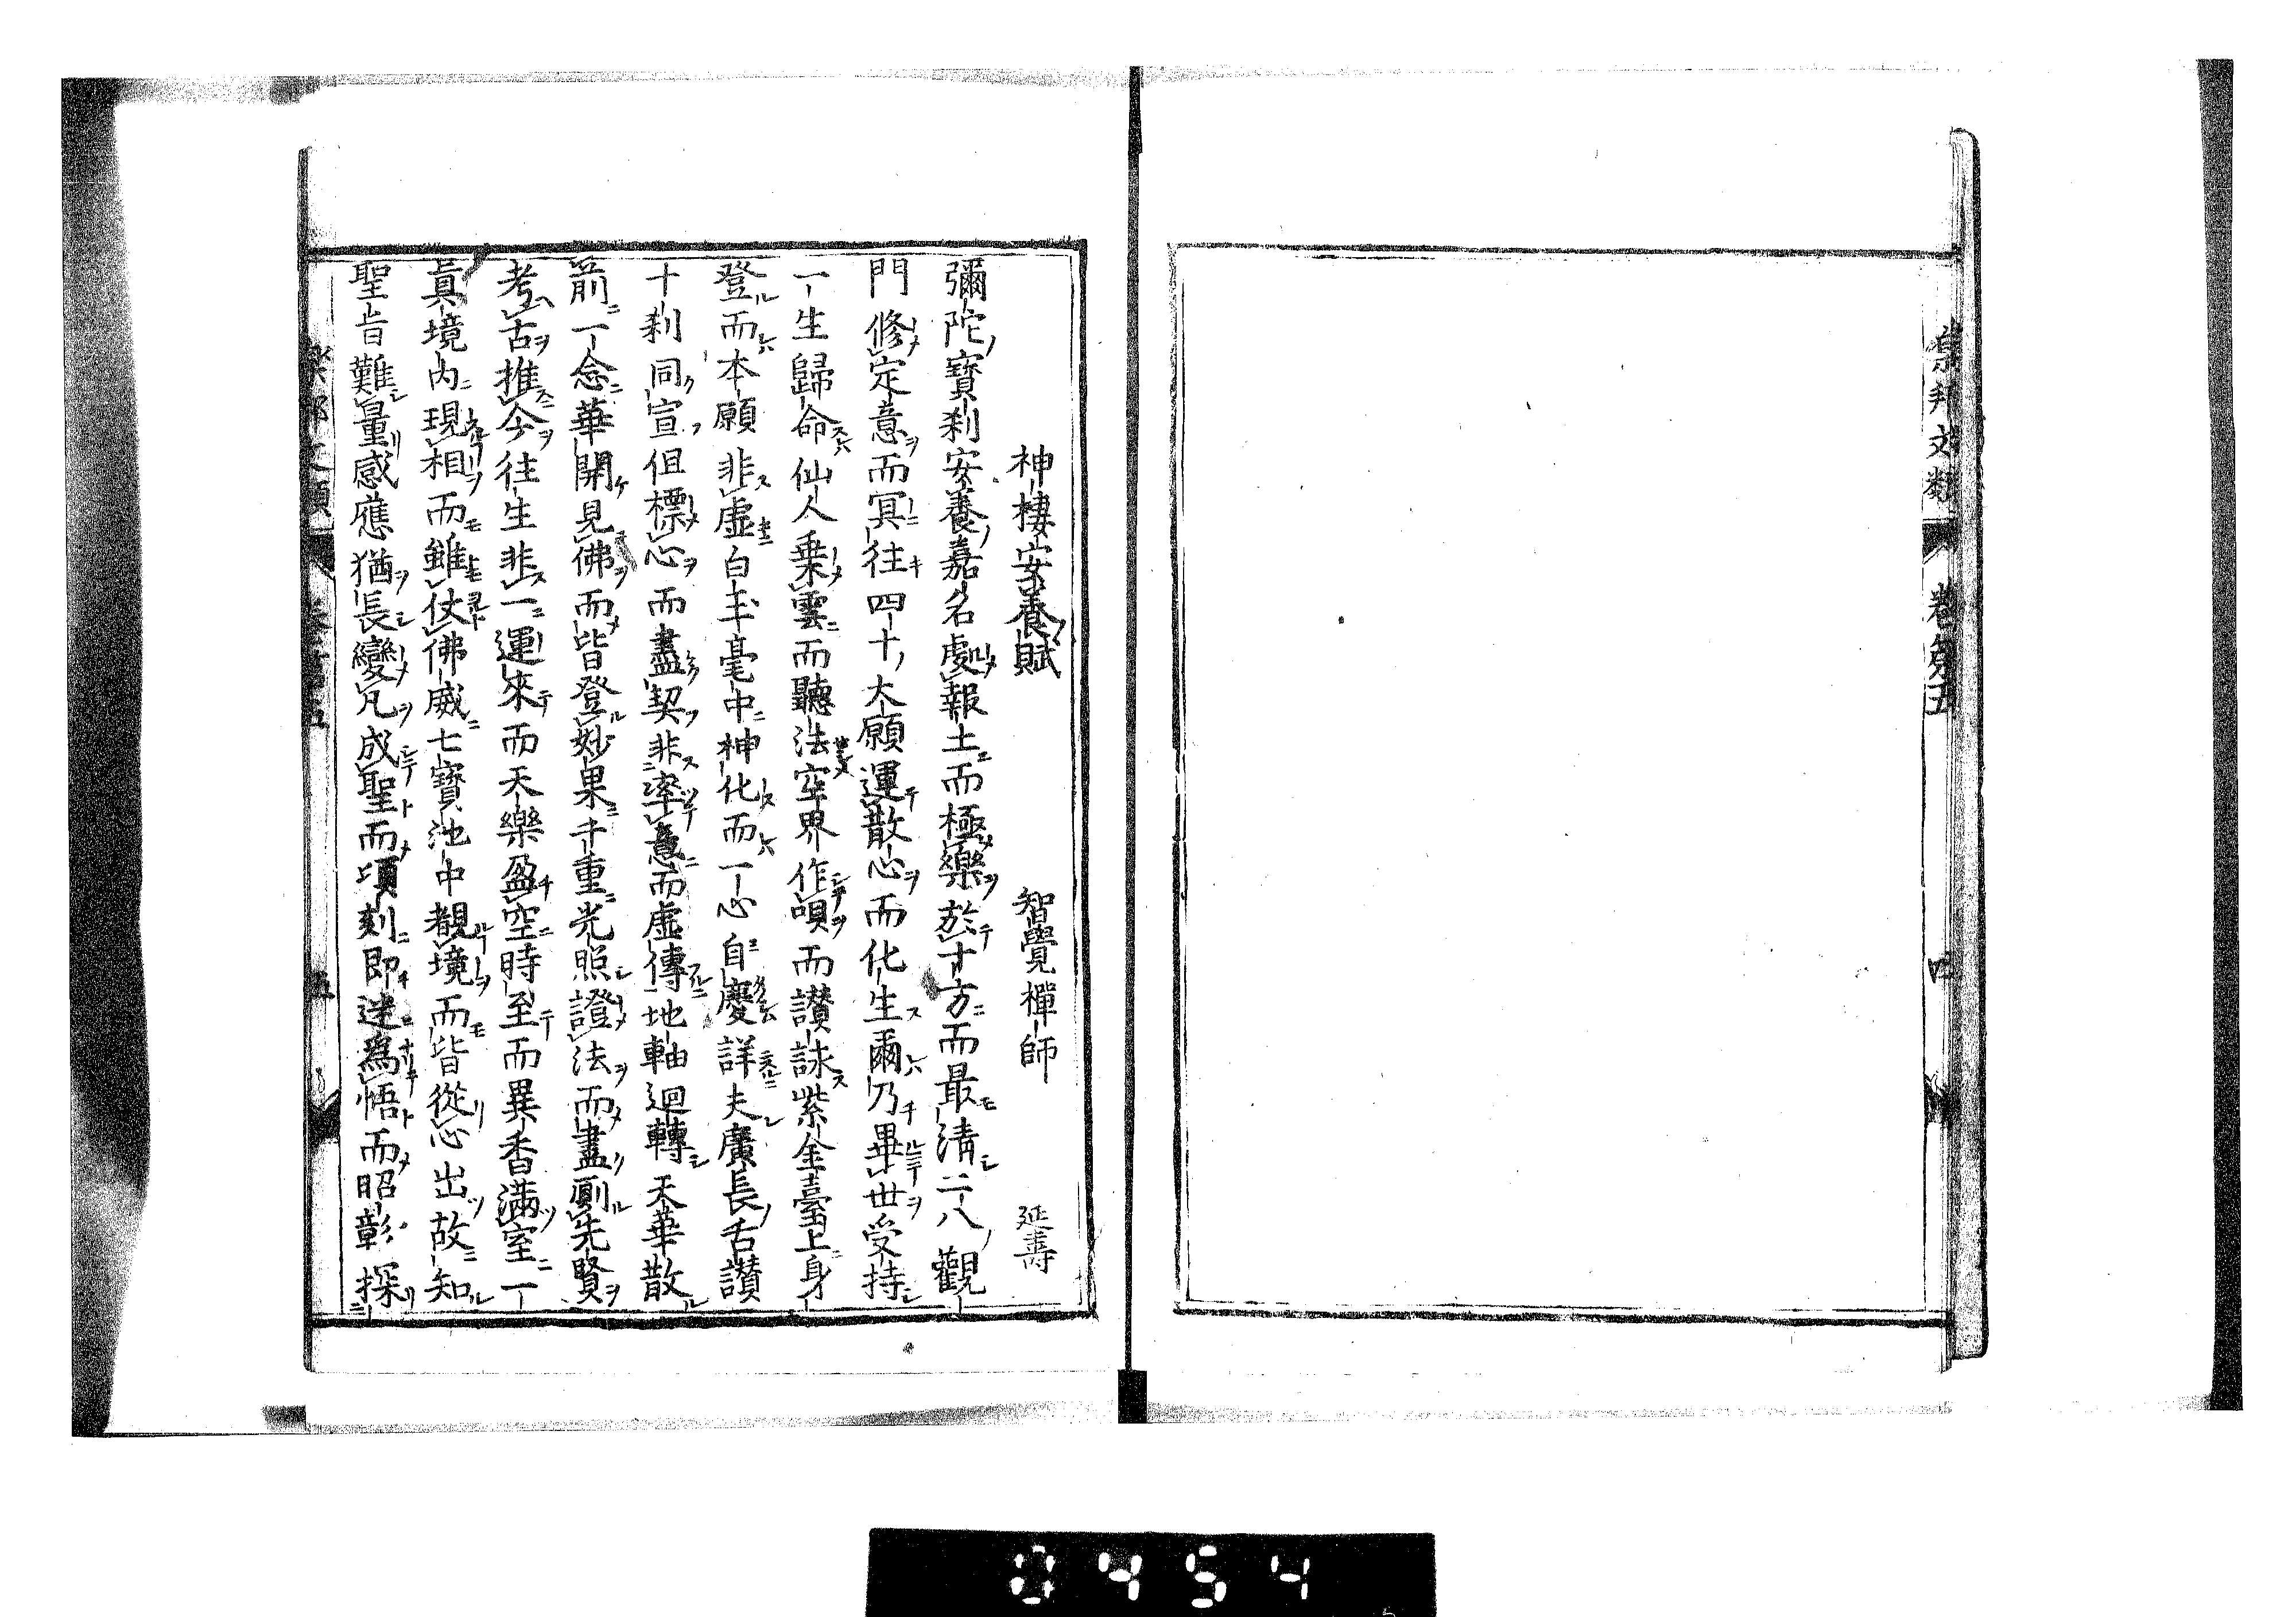 樂邦文類 卷第五 四
神棲安養賦 智覺禪師 延壽
彌陀寶刹安養嘉名處報土而極樂於十方而最清二八觀
門修定意而冥往四十大願運散心而化生爾乃畢世受持
一生歸命仙人乗雲而聽法空界作唄而讃詠紫金臺上身
登而本願非虛白玉毫中神化而一心自慶詳夫廣長舌讃
十刹同宣但標心而盡契非率意而虛傳地軸迴轉天華散
前一念華開見佛而皆登妙果千重光照證法而盡廁先賢
考古推今往生非一運來而天樂盈空時至而異香滿室一
眞境内現相而雖仗佛威七寶池中覩境而皆從心出故知
聖旨難量感應猶長變凡成聖而頃刻即迷爲悟而昭彰探
樂邦文類 卷第五 五
0454